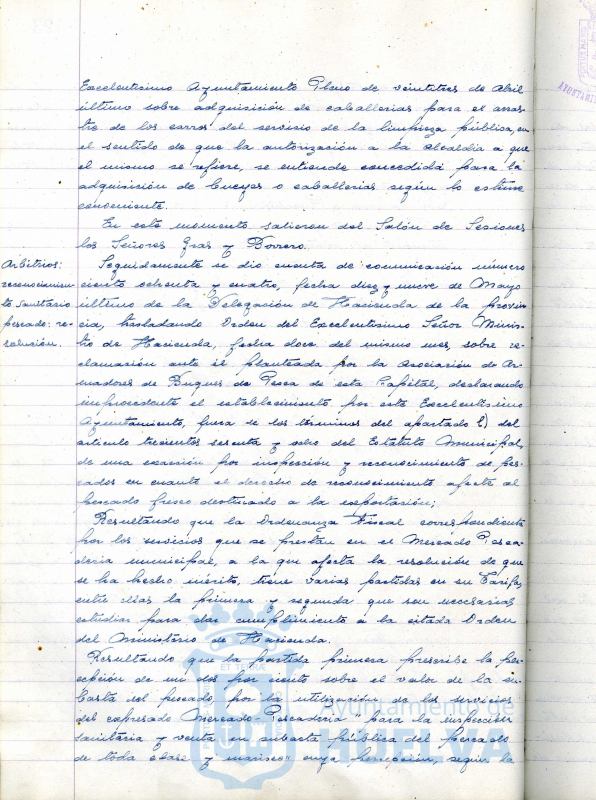 Excelentísimo Ayuntamiento Pleno de veintitres de Abril
último sobre adquisición de caballerias para el arras-
tre de los carros del servicio de la limpieza pública, en
el sentido de que la autorización a la Alcaldia a que
el mismo se refiere, se entiende concedida para la
adquisición de bueyes o caballerias según lo estime
conveniente.
En este momento salieron del Salón de Sesiones
los Señores Gras y Borrero.
Arbitrios:
reconocimien-
to sanitario
pescado: re-
solución.
Seguidamente se dio cuenta de comunicación número
ciento ochenta y cuatro, fecha diez y nueve de Mayo
último de la Delegación de Hacienda de la provin-
cia, trasladando Orden del Excelentísimo Señor Minis-
tro de Hacienda, fecha doce del mismo mes, sobre re-
clamación ante él planteada por la Asociación de Ar-
madores de Buques de Pesca de esta Capital, declarando
improcedente el establecimiento por este Excelentísimo
Ayuntamiento, fuera de los términos del apartado l) del
artículo trescientos sesenta y ocho del Estatuto Municipal,
de una exacción por inspección y reconocimiento de pes-
cados en cuanto el derecho de reconocimiento afecte al
pescado fresco destinado a la exportación;
Resultando que la Ordenanza Fiscal correspondiente
por los servicios que se prestan en el Mercado Pesca-
deria municipal, a la que afecta la resolución de que
se ha hecho mérito, tiene varias partidas en su Tarifa,
entre ellas la primera y segunda que son necesarias
estudiar para dar cumplimiento a la citada Orden
del Ministerio de Hacienda.
Resultando que la partida primera prescribe la per-
cepción de un dos por ciento sobre el valor de la su-
basta del pescado, por la utilización de los servicios
del expresado Mercado-Pescaderia "para la inspección
sanitaria y venta en subasta pública del pescado
de toda clase y marisco" cuya percepción, según la
Ayuntamiento de
HUELVA